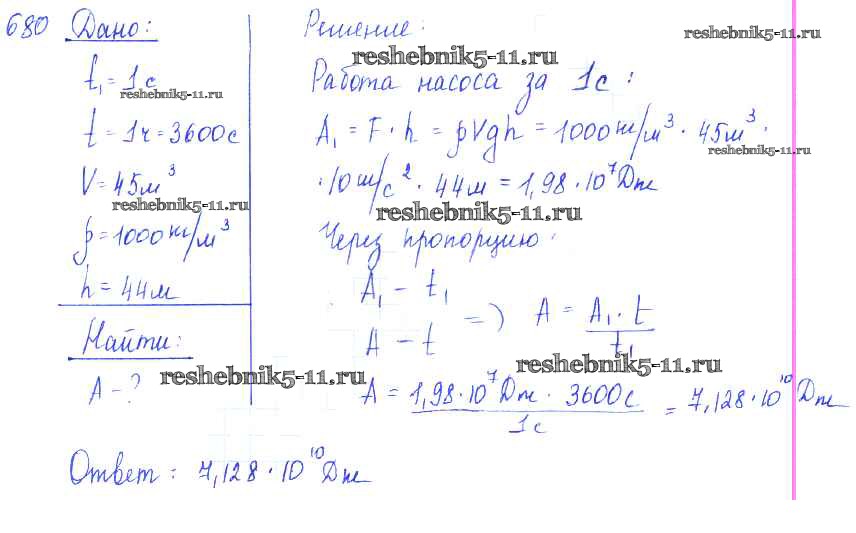 680 Дано:
t₁ = 1с
t = 1ч = 3600с
V = 45м³
ρ = 1000кг/м³
h = 44м
Найти:
A - ?
Решение:
Работа насоса за 1с:
A₁ = F · h = ρVgh = 1000кг/м³ · 45м³ ·
· 10м/с² · 44м = 1,98 · 10⁷Дж
Через пропорцию:
A₁ - t₁
A - t
=> A = A₁ · t / t₁
A = 1,98 · 10⁷Дж · 3600с / 1с = 7,128 · 10¹⁰ Дж
Ответ: 7,128 · 10¹⁰ Дж
reshebnik5-11.ru
reshebnik5-11.ru
reshebnik5-11.ru
reshebnik5-11.ru
reshebnik5-11.ru
reshebnik5-11.ru
reshebnik5-11.ru
reshebnik5-11.ru